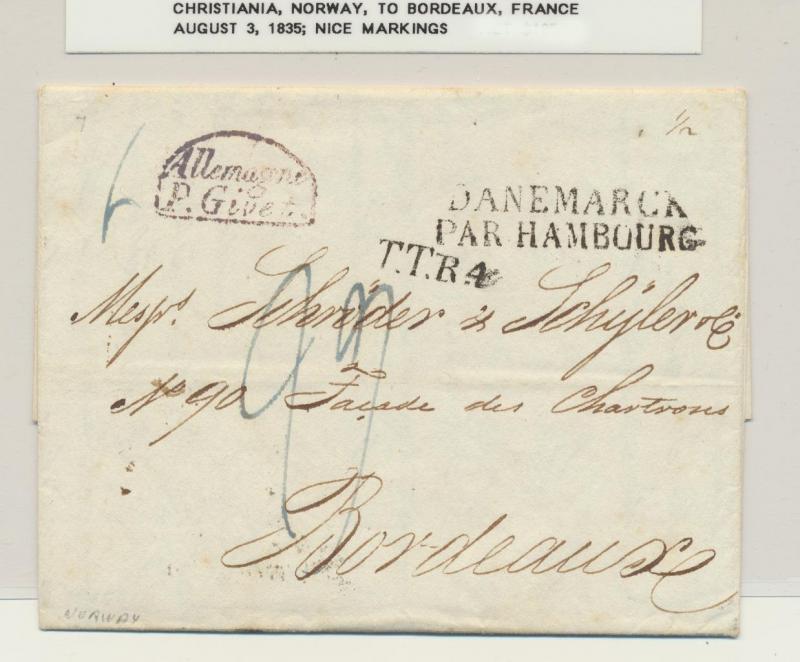 CHRISTIANIA, NORWAY, TO BORDEAUX, FRANCE
AUGUST 3, 1835; NICE MARKINGS
1/2
Allemagne
P. Givet.
DANEMARCK
PAR HAMBOURG
T.T.R.4
Messrs. Schröder & Schÿler & Co
No 90 Façade des Chartrons
Bordeaux
NORWAY